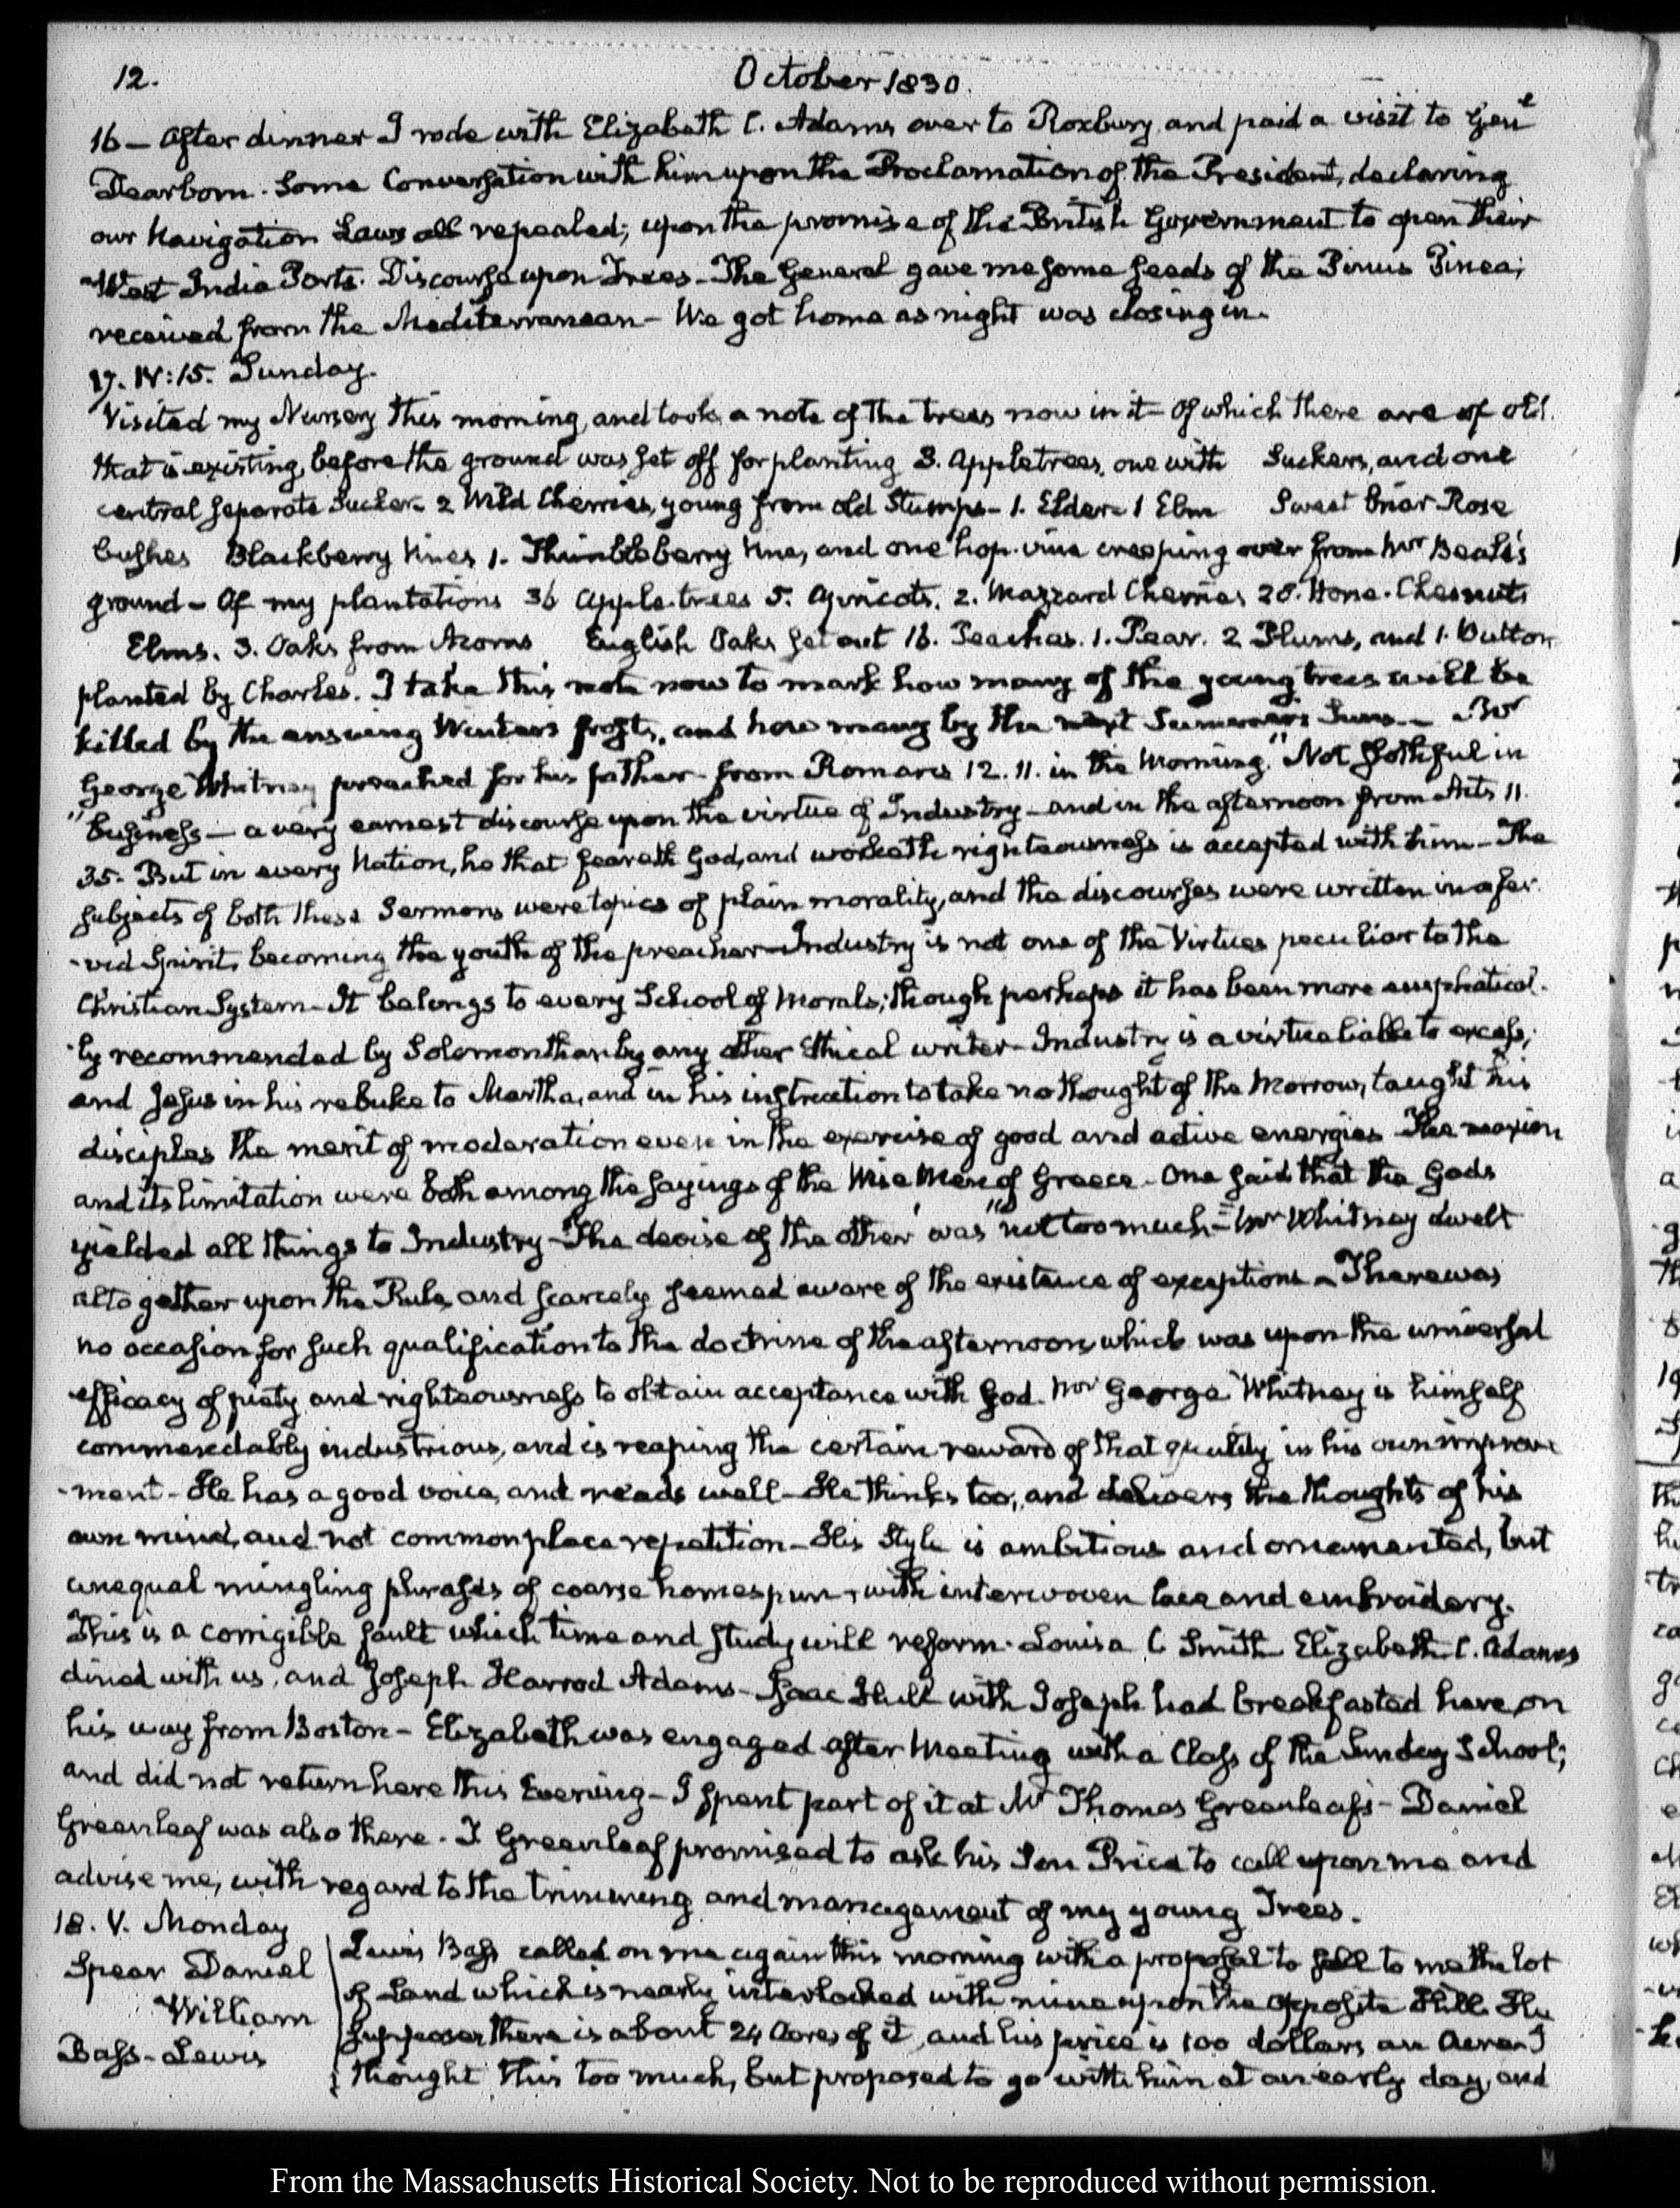 12. October 1830.
16 — After dinner I rode with Elizabeth C. Adams over to Roxbury, and paid a visit to Genl
Dearborn. Some Conversation with him upon the Proclamation of the President, declaring
our Navigation Laws all repealed; upon the promise of the British Government to open their
West India Ports. Discourse upon Trees — The General gave me some seeds of the Pinus Pinea;
received from the Mediterranean — We got home as night was closing in.
17. IV:15. Sunday.
Visited my Nursery this morning, and took a note of the trees now in it — of which there are of old.
that is existing, before the ground was set off for planting 3. Appletrees, one with Suckers, and one
central separate Sucker — 2 Wild Cherries, young from old Stumps — 1. Elder — 1 Elm Sweet briar Rose
bushes Blackberry Vines 1. Thimbleberry Vine, and one hop-vine creeping over from Mr Beale's
ground — Of my plantations 36 Apple-trees 5. Apricots. 2. Mazzard Cherries 28. Horse-Chesnuts
Elms. 3. Oaks from Acorns English Oaks set out 16. Peaches. 1. Pear. 2 Plums, and 1. Button
planted by Charles. I take this note now to mark how many of the young trees will be
killed by the ensuing Winters frosts, and how many by the next Summer's Suns — Mr
George Whitney preached for his father — from Romans 12. 11. in the Morning. "Not slothful in
"business — a very earnest discourse upon the virtue of Industry — and in the afternoon from Acts 11.
35. But in every Nation, he that feareth God, and worketh righteousness is accepted with him — The
subjects of both these Sermons were topics of plain morality, and the discourses were written in a fer-
-vid Spirit, becoming the youth of the preacher — Industry is not one of the Virtues peculiar to the
Christian System — It belongs to every School of Morals; though perhaps it has been more emphatical-
-ly recommended by Solomon than by any other Ethical writer — Industry is a virtue liable to excess;
and Jesus in his rebuke to Martha, and in his instruction to take no thought of the Morrow, taught his
disciples the merit of moderation even in the exercise of good and active energies The maxim
and its limitation were both among the sayings of the Wise Men of Greece — One said that the Gods
yielded all things to Industry — The devise of the other was "not too much — Mr Whitney dwelt
altogether upon the Rule, and scarcely seemed aware of the existence of exceptions — There was
no occasion for such qualification to the doctrine of the afternoon, which was upon the universal
efficacy of piety and righteousness to obtain acceptance with God. Mr George Whitney is himself
commendably industrious, and is reaping the certain reward of that quality in his own improve
-ment — He has a good voice, and reads well — He thinks too, and delivers the thoughts of his
own mind, and not common place repetition — His Style is ambitious and ornamented, but
unequal mingling phrases of coarse homespun, with interwoven lace and embroidery.
This is a corrigible fault which time and study will reform. Louisa C Smith Elizabeth C. Adams
dined with us, and Joseph Harrod Adams — Isaac Hull with Joseph had breakfasted here, on
his way from Boston — Elizabeth was engaged after Meeting with a Class of the Sunday School;
and did not return here this Evening — I spent part of it at Mr Thomas Greenleaf's — Daniel
Greenleaf was also there. T Greenleaf promised to ask his Son Price to call upon me and
advise me, with regard to the trimming and management of my young Trees.
18. V. Monday
Spear Daniel
William
Bass — Lewis
Lewis Bass called on me again this morning with a proposal to sell to me the lot
of Land which is nearly interlocked with mine upon the opposite Hill. He
supposes there is about 24 Acres of it, and his price is 100 dollars an Acre — I
thought this too much, but proposed to go with him at an early day, and
From the Massachusetts Historical Society. Not to be reproduced without permission.